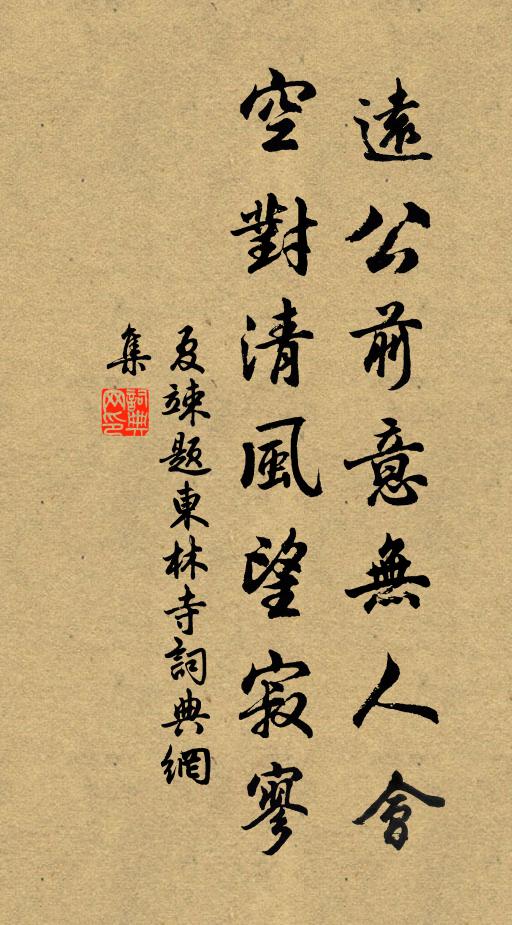 遠公前意無人會
空對清風望寂寥
夏竦題東林寺詞典網
集
詞典
網印